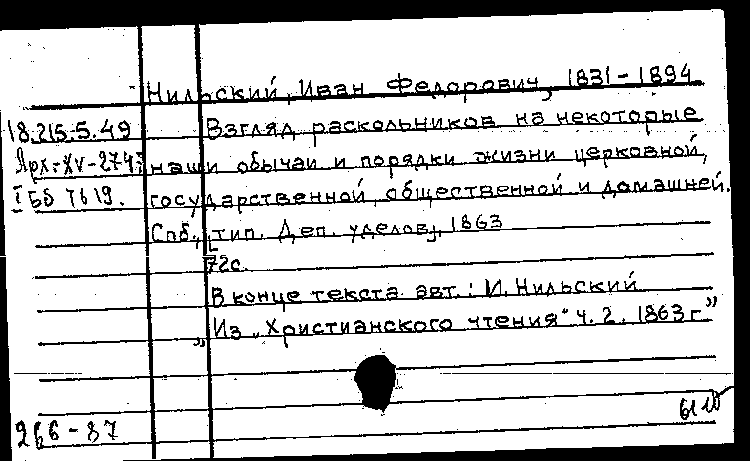 Нильский, Иван Федорович, 1831-1894
18.215.5.49 Взгляд раскольников на некоторые
наши обычаи и порядки жизни церковной,
государственной, общественной и домашней.
Спб., тип. Деп. уделов, 1863
72с.
В конце текста авт.: И. Нильский
„Из „Христианского чтения" ч. 2. 1863 г"
266-87